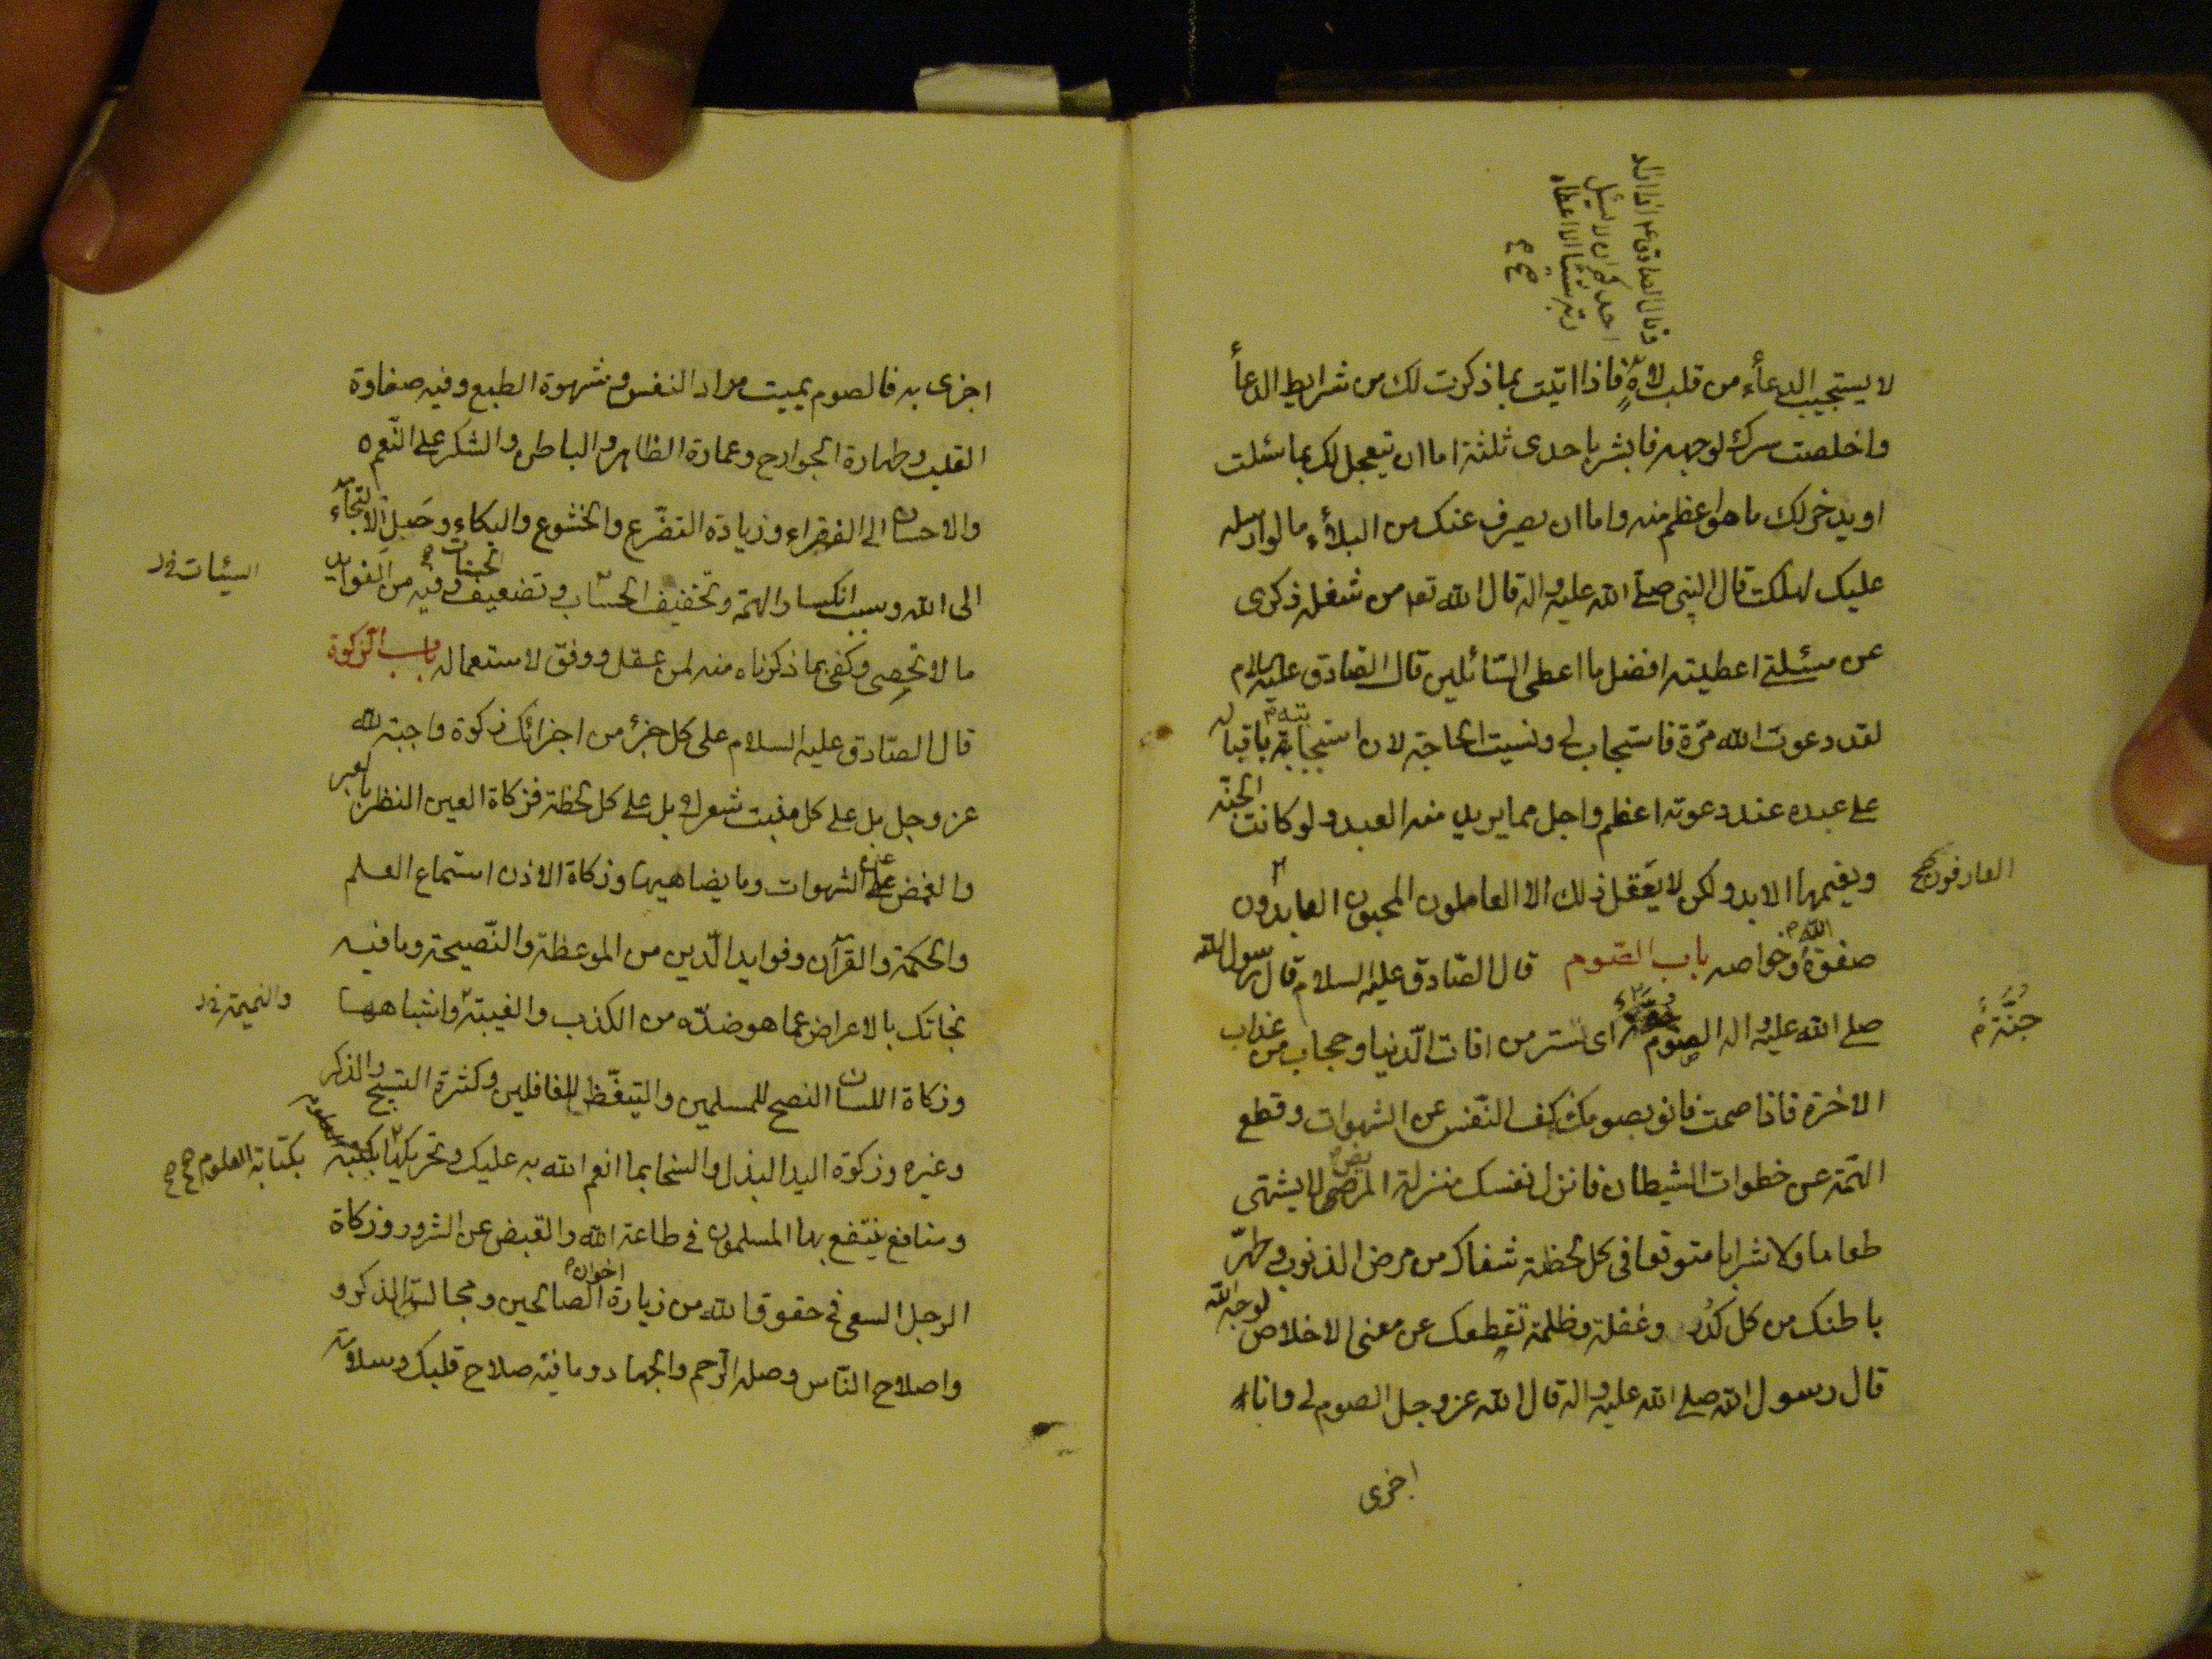 وقال الصادق ع اذا اراد
احدكم ان لا يسئل
ربه شيئا الا اعطاه
لا يستجيب الدعاء من قلب لاهٍ فاذا اتيت بما ذكرت لك من شرايط الدعأ
واخلصت سرك لوجهه فابشر باحدى ثلثة اما ان يتعجل لك بما سئلت
او يدخر لك ما هو اعظم منه واما ان يصرف عنك من البلأء ما لو ارسله
عليك لهلكت قال النبى صلى الله عليه واله قال الله تعه من شغله ذكرى
عن مسئلتى اعطيته افضل ما اعطى السّائلين قال الصّادق عليه السلام
لقد دعوت الله مرّة فاستجاب لى ونسيت الحاجة لان استجابته باقباله
على عبده عند دعوته اعظم واجل مما يريد منه العبد ولو كانت الجنّة
ونعيمها الابد ولكن لا يعقل ذلك الا العاملون المحبون العابدون
العارفون صح
صفوة الله وخواصه باب الصّوم قال الصّادق عليه السلام قال رسول الله
صلى الله عليه واله الصوم اى ستر من افات الدّنيا وحجاب من عذاب
جُنّة م
الاخرة فاذا صمت فانو بصومك كف النّفس عن الشهوات وقطع
الهّمة عن خطوات الشيطان فانزل نفسك منزلة المرضى لا يشتهى
طعاما ولا شرابا متوقعا فى كل لحظة شفاك من مرض الذنوب وطهّر
باطنك من كل كَدُر وغفلة وظلمة تقطعك عن معنى الاخلاص لوجه الله
قال رسول الله صلى الله عليه واله قال الله عز وجل الصوم لى وانا
اجزى
اجزى به فالصوم يميت مراد النفس وشهوة الطبع وفيه صفاوة
القلب وطهارة الجوارح وعمارة الظاهر والباطن والشكر على النّعم
والاحسان الى الفقراء وزيادة التضرّع والخشوع والبكاء وحَبل الالتجاء
الى الله وسبب انكسار الهمّة وتخفيف الحسّاب وتضعيف الحسنات وفيه من الفوايد
السيئات خ‌ل
ما لا تحصى وكفى بما ذكرناه منه لمن عقل ووفق لاستعماله باب الزّكوة
قال الصّادق عليه السلام على كل جزء من اجزائك زكوة واجبة لله
عز وجل بل على كل منبت شعرة بل على كل لحظة فزكاة العين النظر بالعبر
والغض عن الشهوات وما يضاهيها وزكاة الاذن استماع العلم
والحكمة والقرآن وفوايد الدّين من الموعظة والنّصيحة وما فيه
نجاتك بالاعراض عما هو ضدّه من الكذب والغيبة واشباههما
والنميمة خ‌ل
وزكاة اللسان النصح للمسلمين والتيقّظ للغافلين وكثرة التسبيح والذكر
وغيره وزكوة اليد البذل والسخا بما انعم الله به عليك وتحريكها بكتبه العلوم
بكتابة العلوم صح
ومنافع ينتفع بها المسلمون فى طاعة الله والقبض عن الشرور وزكاة
الرجل السعى فى حقوق الله من زيارة الصالحين ومجالس الذكر و
اخوان
واصلاح النّاس وصلة الرّحم والجهاد وما فيه صلاح قلبك وسلامة